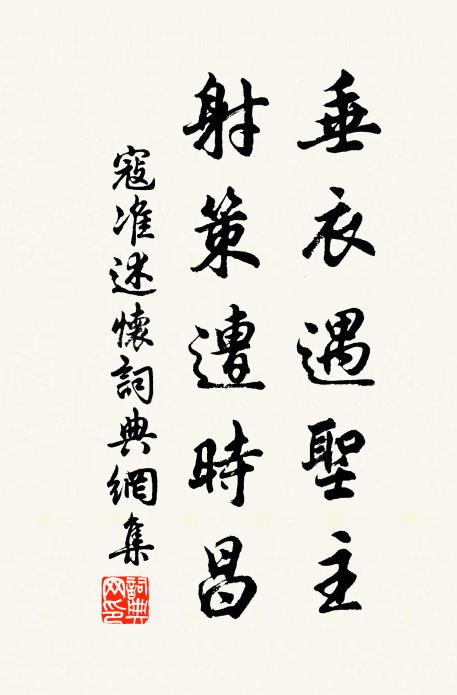 垂衣遇聖主
射策遭時昌
寇准述懷詞典網集
詞典网印